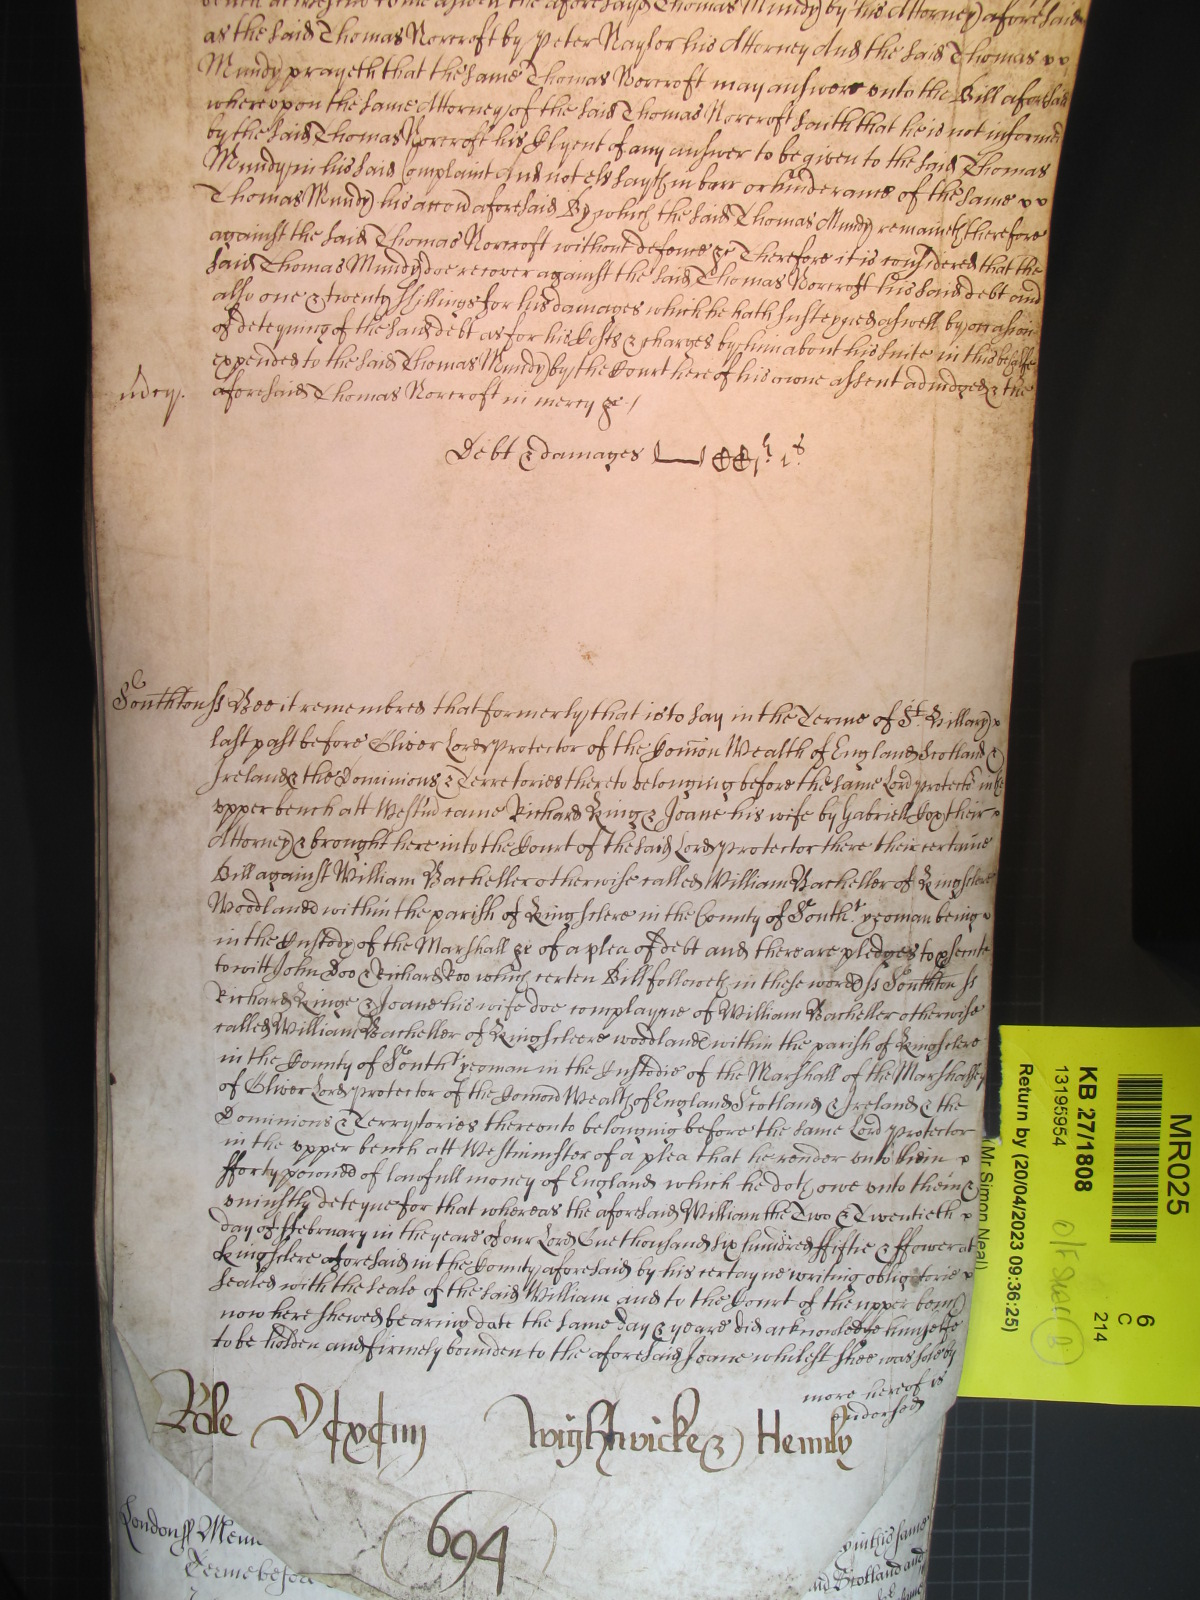 bench att Westm̄ came aswell the aforesaid Thomas Mundy by his Attorney aforesaid
as the said Thomas Norcroft by Peter Naylor his Attorney And the said Thomas
Mundy prayeth that the same Thomas Norcroft may answere unto the Bill aforesaid
whereupon the same Attorney of the said Thomas Norcroft saith that he is not informed
by the said Thomas Norcroft his Clyent of any answer to be given to the said Thomas
Mundy in his said Complaint And not els sayth in barr or hinderance of the same
Thomas Mundy his accon aforesaid By which the said Thomas Mundy remaineth therefore
against the said Thomas Norcroft without defence &c Therefore it is considered that the
said Thomas Mundy doe recover against the said Thomas Norcroft his said debt and
also one & twenty shillings for his damages which he hath susteyned aswell by occasion
of deteyning of the said debt as for his Costs & charges by him about his suite in this behalfe
expended to the said Thomas Mundy by the Court here of his owne assent adiudged & the
aforesaid Thomas Norcroft in mercy &c
Debt & damages
Southton ss Bee it remembred that formerly that is to say in the Terme of St Hillary
last past before Oliver Lord Protector of the Com̄on Wealth of England Scotland &
Ireland & the Dominions & Terretories thereto belonging before the same Lord Protector in the
upper bench att Westm̄ came Richard King & Joane his wife by Gabriell Cox their
Attorney & brought here into the Court of the said Lord Protector there their certaine
Bill against William Bacheller otherwise called William Bacheller of Kingsclere
Woodland within the parish of Kingsclere in the County of Southt yeoman being
in the Custody of the Marshall &c of a plea of debt and there are pledges to p̱sente
to witt John Doo & Richard Roo which certen Bill followeth in these words ss Southton ss
Richard Kinge & Joane his wife doe complayne of William Bacheller otherwise
called William Bacheller of Kingscleere woodland within the parish of Kingsclere
in the County of Southt yeoman in the Custodie of the Marshall of the Marshalsey
of Oliver Lord Protector of the Comon Wealth of England Scotland & Ireland & the
Dominions & Terrytories thereunto belonging before the same Lord Protector
in the upper bench att Westminster of a plea that he render unto them
fforty pounds of lawfull money of England which he doth owe unto them &
uniustly deteyne for that whereas the aforesaid William the Two & Twentieth
day of ffebruary in the yeare of our Lord One thousand six hundred ffiftie & ffower at
Kingsclere aforesaid in the County aforesaid by his certayne writing obligatorie
sealed with the seale of the said William and to the Court of the upper bench
now here shewed bearing date the same day & yeare did acknowledge himselfe
to be holden and firmely bounden to the aforesaid Joane whilest shee was sole by
more hereof is
endorsed
Role Wightwicke & Henly
694
London ss Mem
Terme before
in this same
nd Scotland and
MR025
6
C
214
KB 27/1808
13195954
(Mr Simon Neal)
Return by (20/04/2023 09:36:25)